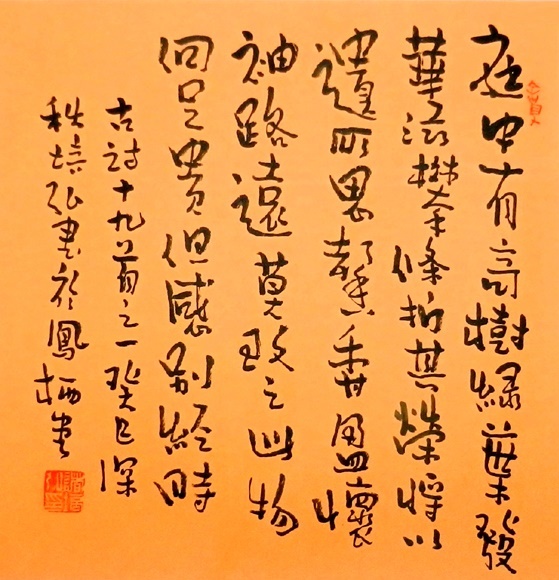 庭中有奇樹綠葉發
華滋攀條折其榮將以
遺所思馨香盈懷
袖路遠莫致之此物
何足貴但感別經時
古詩十九首之一癸巳深
秋培弘書於鳳栖